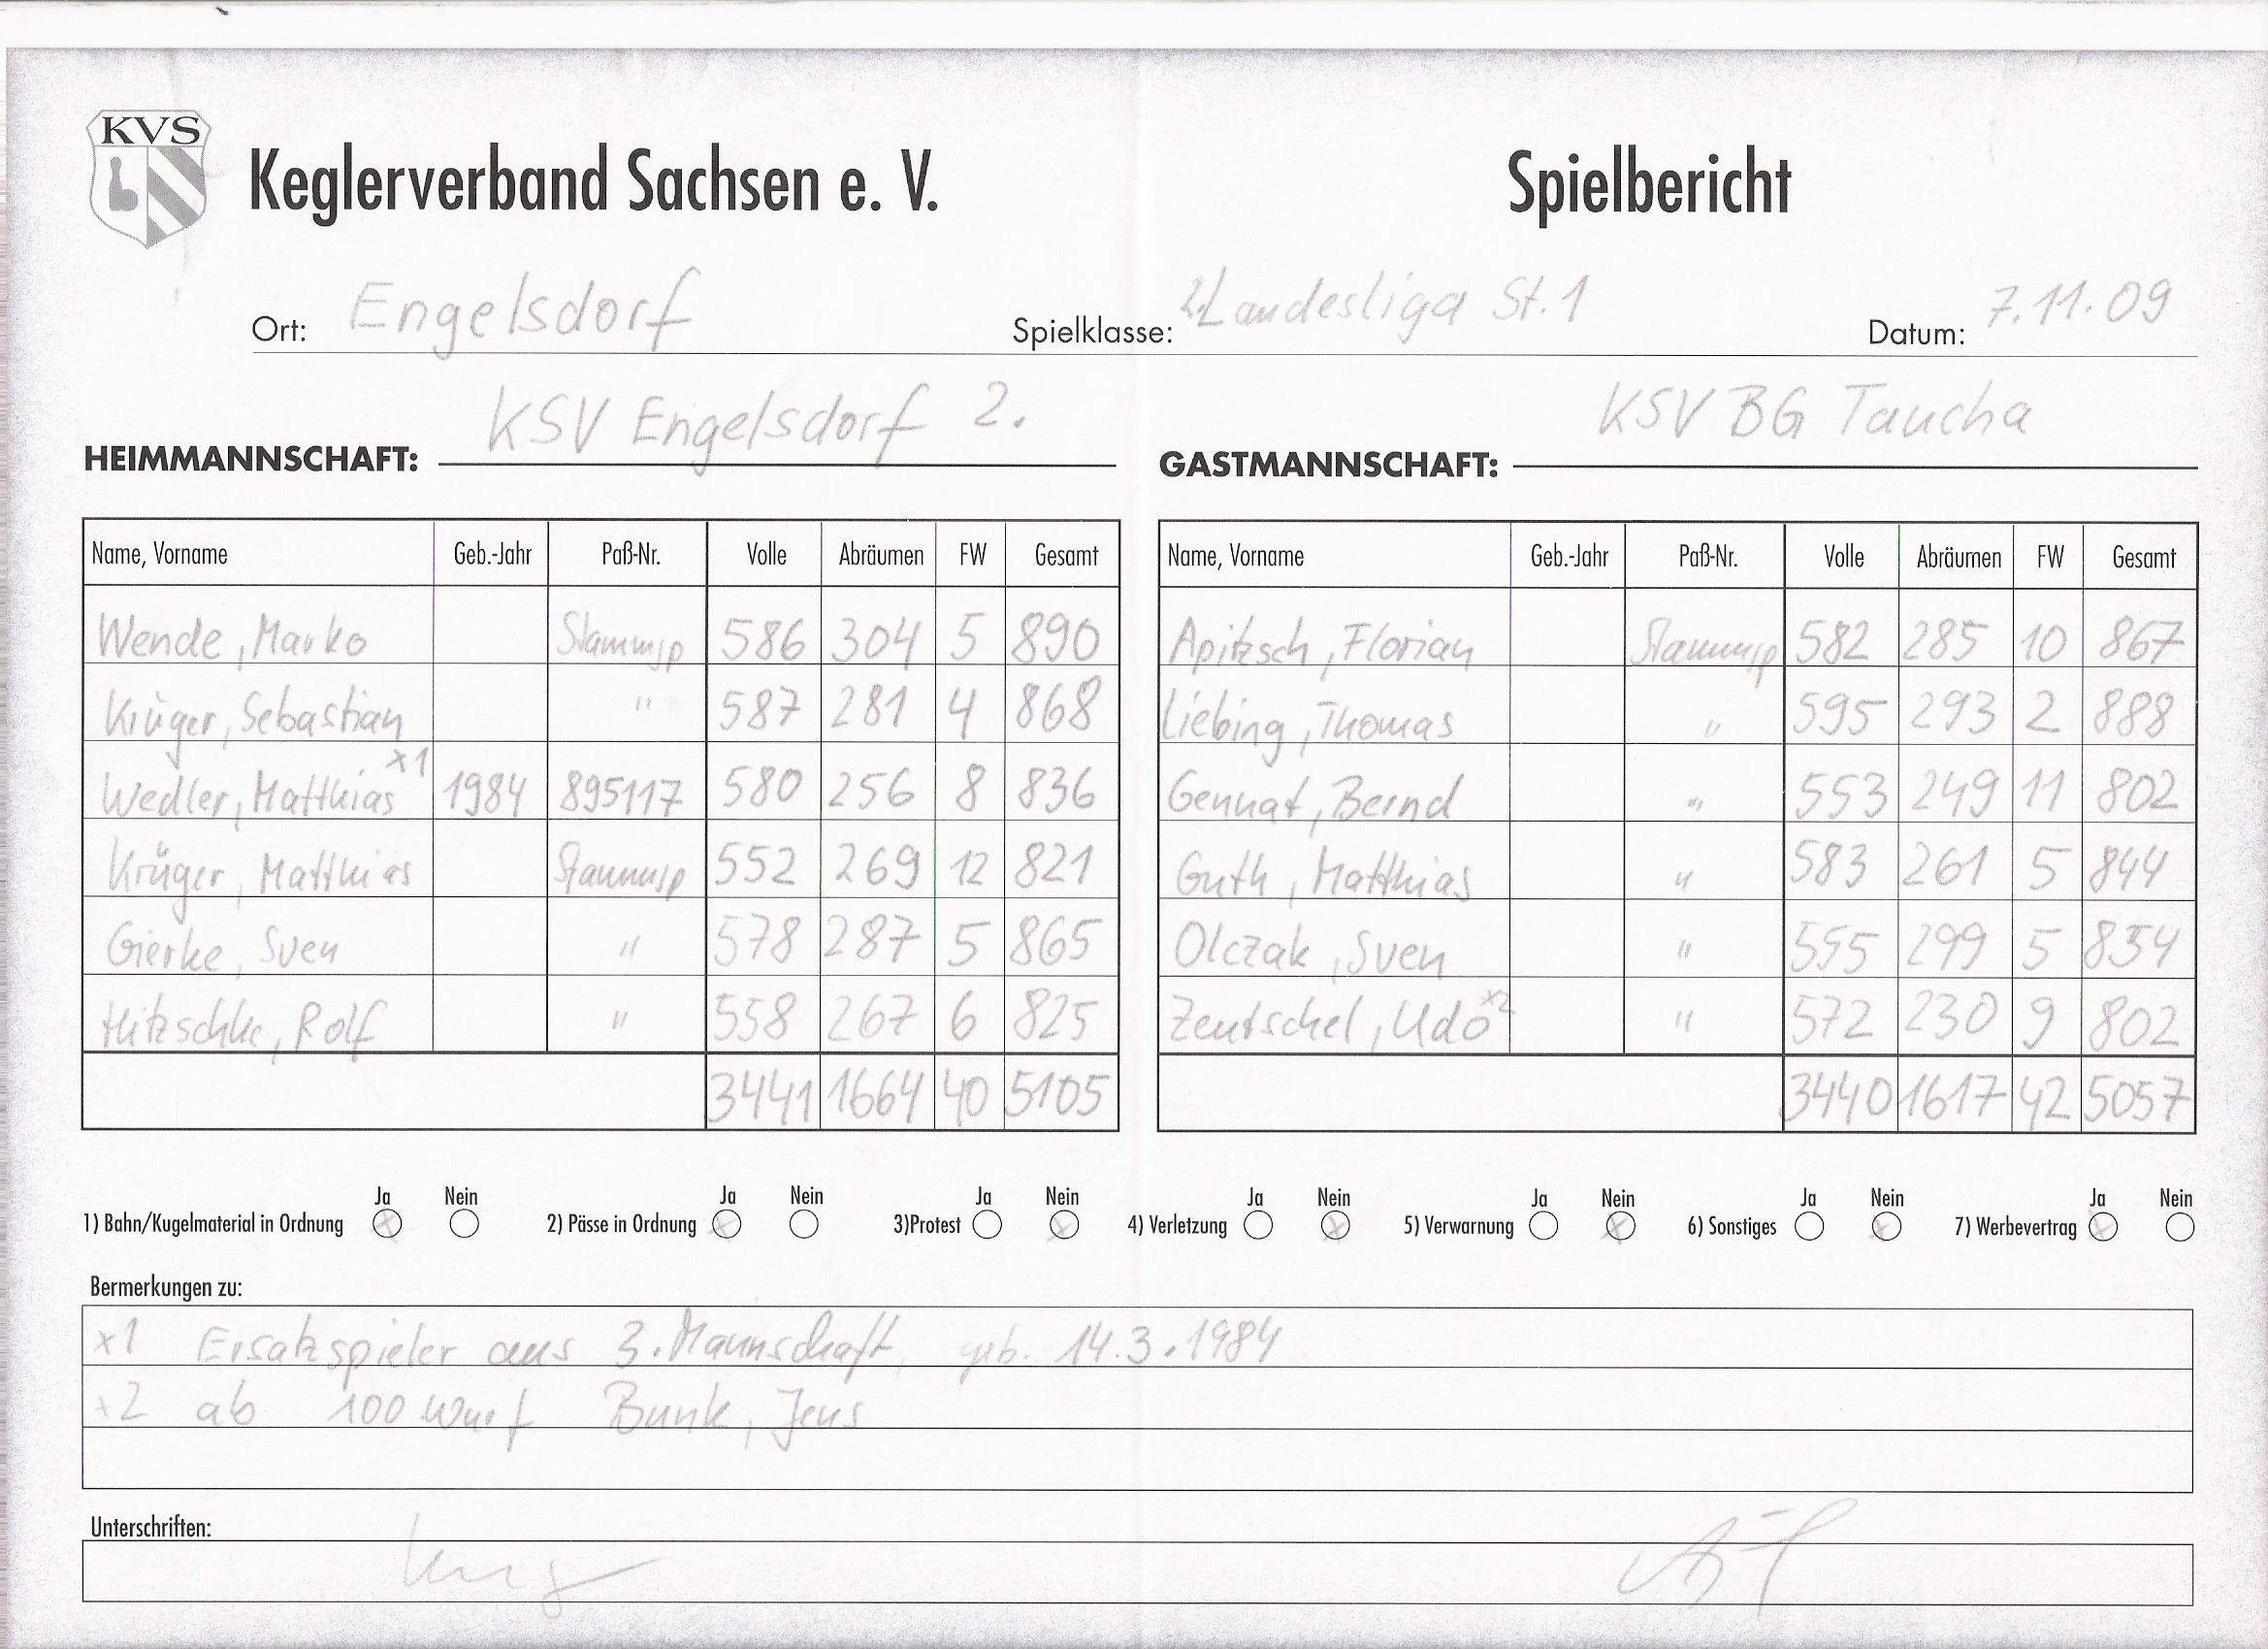 KVS
Keglerverband Sachsen e. V.
Spielbericht
Ort: Engelsdorf Spielklasse: 2. Landesliga St. 1 Datum: 7.11.09
HEIMMANNSCHAFT: KSV Engelsdorf 2.
GASTMANNSCHAFT: KSV BG Taucha
Name, Vorname Geb.-Jahr Paß-Nr. Volle Abräumen FW Gesamt
Wende, Marko Stammsp 586 304 5 890
Krüger, Sebastian " 587 281 4 868
Wedler, Matthias x1 1984 895117 580 256 8 836
Krüger, Matthias Stammsp 552 269 12 821
Gierke, Sven " 578 287 5 865
Hitzschke, Rolf " 558 267 6 825
3441 1664 40 5105
Name, Vorname Geb.-Jahr Paß-Nr. Volle Abräumen FW Gesamt
Apitzsch, Florian Stammsp 582 285 10 867
Liebing, Thomas " 595 293 2 888
Gennat, Bernd " 553 249 11 802
Guth, Matthias " 583 261 5 844
Olczak, Sven " 555 299 5 854
Zentschel, Udo x2 " 572 230 9 802
3440 1617 42 5057
1) Bahn/Kugelmaterial in Ordnung Ja Nein 2) Pässe in Ordnung Ja Nein 3)Protest Ja Nein 4) Verletzung Ja Nein 5) Verwarnung Ja Nein 6) Sonstiges Ja Nein 7) Werbevertrag Ja Nein
Bermerkungen zu:
x1 Ersatzspieler aus 3. Mannschaft, geb. 14.3.1984
x2 ab 100 Wurf Bunk, Jens
Unterschriften: